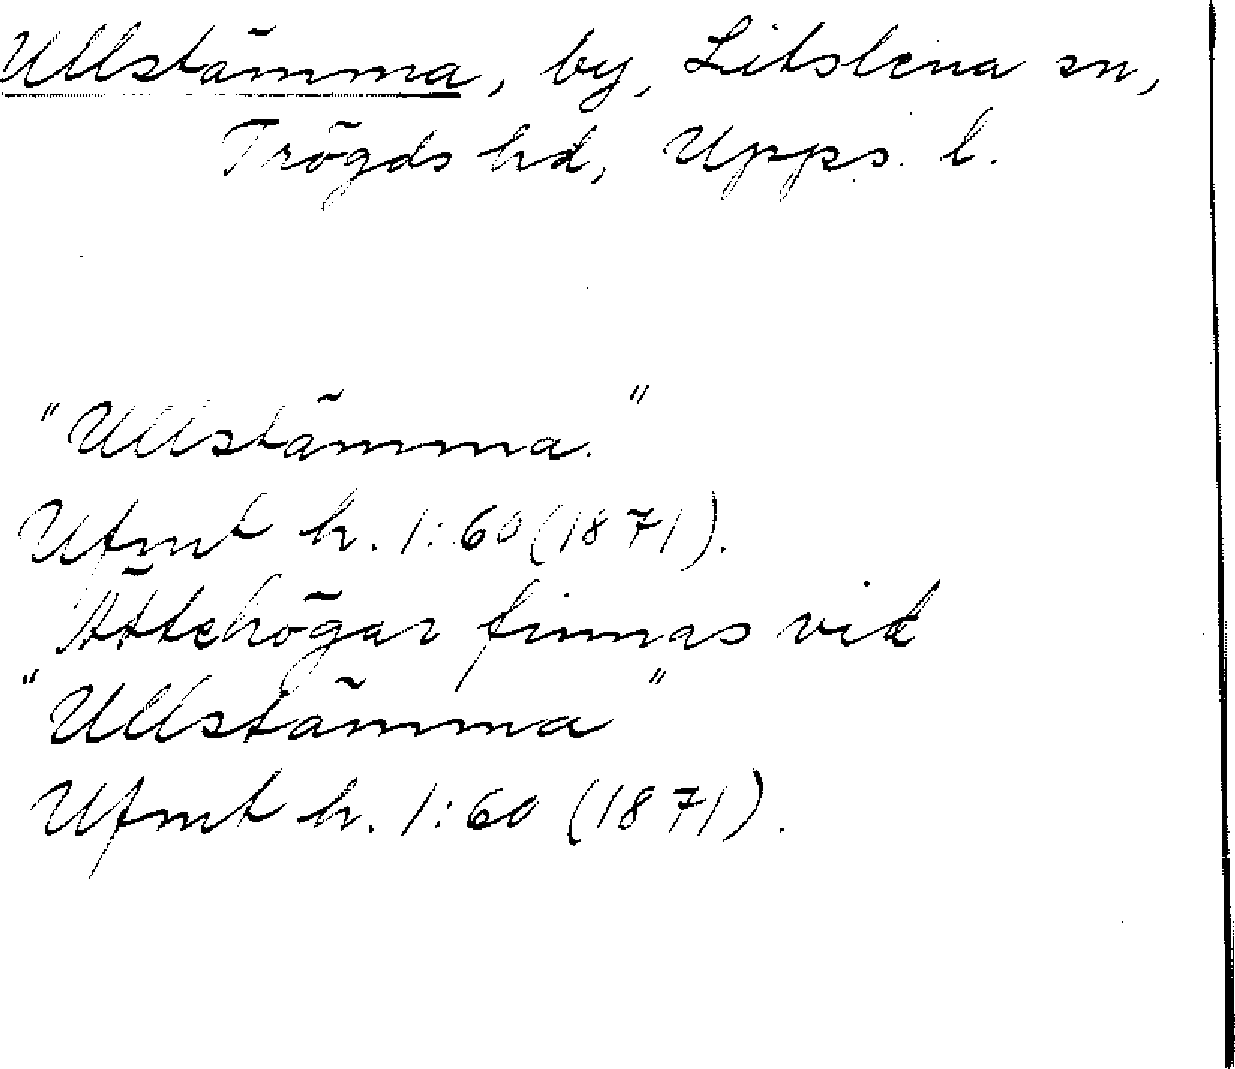 Ullstämma, by, Litslena sn,
Trögds hd, Upps. l.
"Ullstämma."
Ufmt h. 1:60 (1871).
Ättehögar finnas vid
"Ullstämma"
Ufmt h. 1:60 (1871).